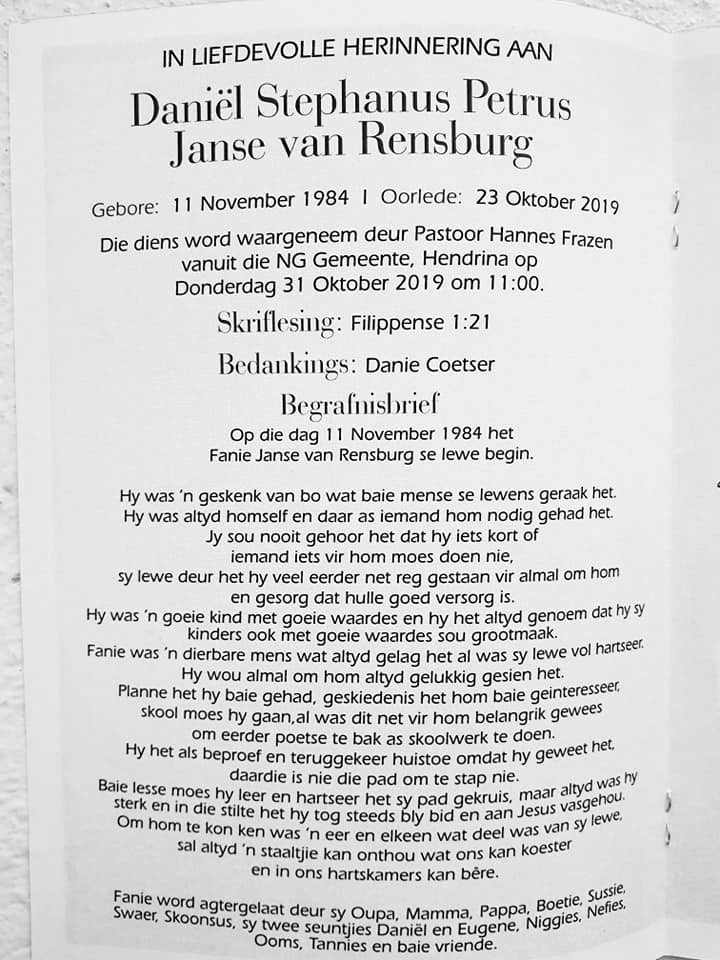 IN LIEFDEVOLLE HERINNERING AAN
Daniël Stephanus Petrus
Janse van Rensburg
Gebore: 11 November 1984 I Oorlede: 23 Oktober 2019
Die diens word waargeneem deur Pastoor Hannes Frazen
vanuit die NG Gemeente, Hendrina op
Donderdag 31 Oktober 2019 om 11:00.
Skriflesing: Filippense 1:21
Bedankings: Danie Coetser
Begrafnisbrief
Op die dag 11 November 1984 het
Fanie Janse van Rensburg se lewe begin.
Hy was 'n geskenk van bo wat baie mense se lewens geraak het.
Hy was altyd homself en daar as iemand hom nodig gehad het.
Jy sou nooit gehoor het dat hy iets kort of
iemand iets vir hom moes doen nie,
sy lewe deur het hy veel eerder net reg gestaan vir almal om hom
en gesorg dat hulle goed versorg is.
Hy was 'n goeie kind met goeie waardes en hy het altyd genoem dat hy sy
kinders ook met goeie waardes sou grootmaak.
Fanie was 'n dierbare mens wat altyd gelag het al was sy lewe vol hartseer.
Hy wou almal om hom altyd gelukkig gesien het.
Planne het hy baie gehad, geskiedenis het hom baie geinteresseer,
skool moes hy gaan,al was dit net vir hom belangrik gewees
om eerder poetse te bak as skoolwerk te doen.
Hy het als beproef en teruggekeer huistoe omdat hy geweet het,
daardie is nie die pad om te stap nie.
Baie lesse moes hy leer en hartseer het sy pad gekruis, maar altyd was hy
sterk en in die stilte het hy tog steeds bly bid en aan Jesus vasgehou.
Om hom te kon ken was 'n eer en elkeen wat deel was van sy lewe,
sal altyd 'n staaltjie kan onthou wat ons kan koester
en in ons hartskamers kan bêre.
Fanie word agtergelaat deur sy Oupa, Mamma, Pappa, Boetie, Sussie,
Swaer, Skoonsus, sy twee seuntjies Daniël en Eugene, Niggies, Nefies,
Ooms, Tannies en baie vriende.